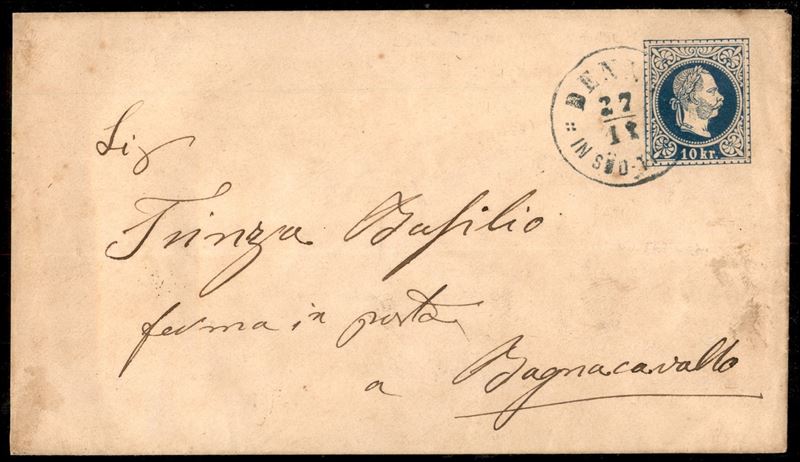 27
11
IN SÜD-T
10 kr.
Sig
Basilio
ferma in posta
a Bagnacavallo